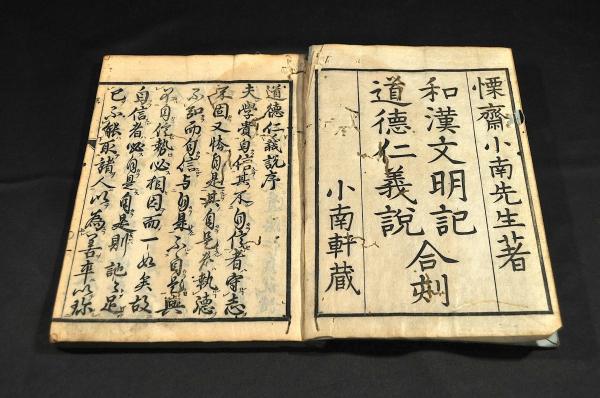 慄齋小南先生著
和漢文明記
道德仁義說
合刻
小南軒蔵
道德仁義說序
夫學貴自信其不自信者守志
不固又自是其自是者執德
不弘而自信与自是不自是與
不自信勢必相因而一如矣故
自信者必自是自是則訑不足
已不能取諸人以為善率以